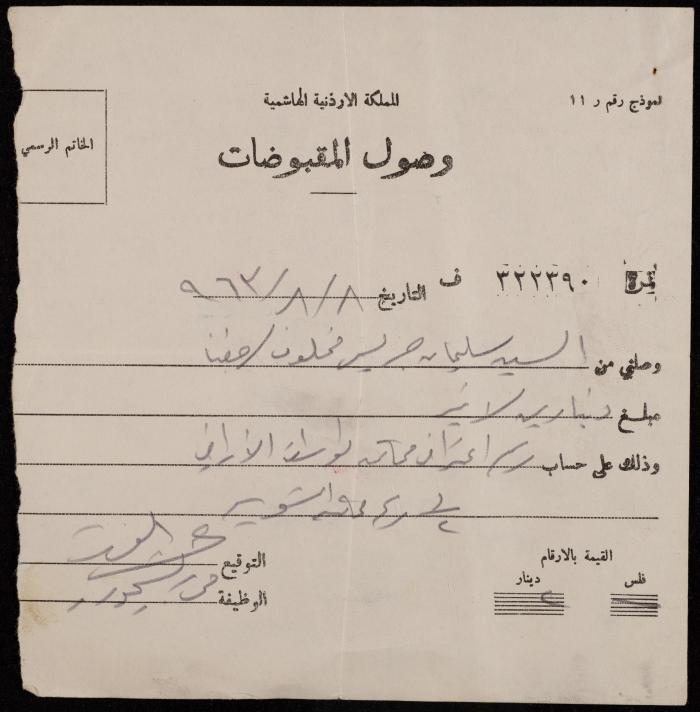 نموذج رقم ر ١١
المملكة الاردنية الهاشمية
الخاتم الرسمي
وصول المقبوضات
نمرة ٣٢٢٣٩٠ ف التاريخ ٨/٨/٩٦٣
وصلني من السيد سليمان جريس مخلوف / جفنا
مبلغ دينارين لا غير
وذلك على حساب رسم اعتراض الاراضي
التسوية
القيمة بالارقام
فلس دينار
— ٢
التوقيع
الوظيفة